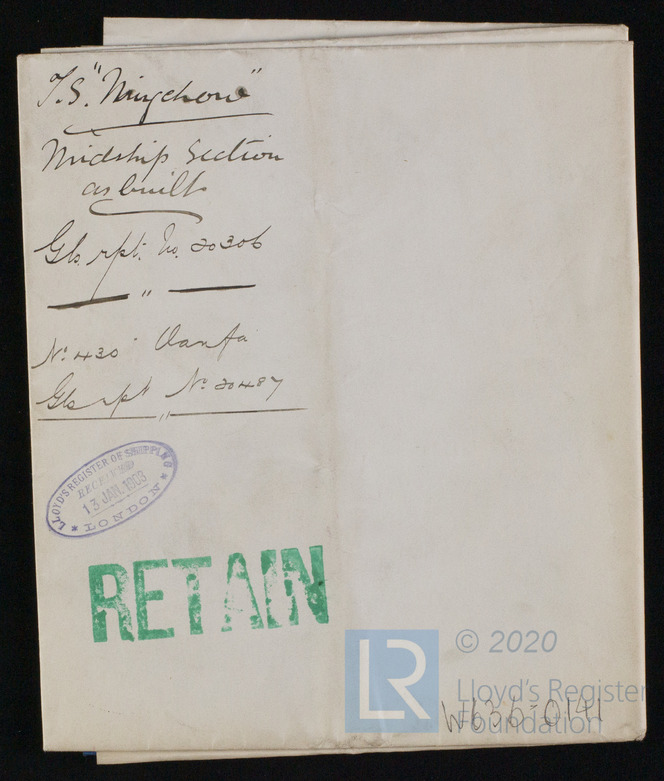 T.S. "Ningchow"
Midship Section
as built
Gls. rpt. No. 20306
"
No. 430 Oanfa
Gls rpt No. 20487
"
LLOYD'S REGISTER OF SHIPPING
RECEIVED
13 JAN. 1903
* LONDON *
RETAIN
LR
© 2020
Lloyd's Register
Foundation
W636-0141